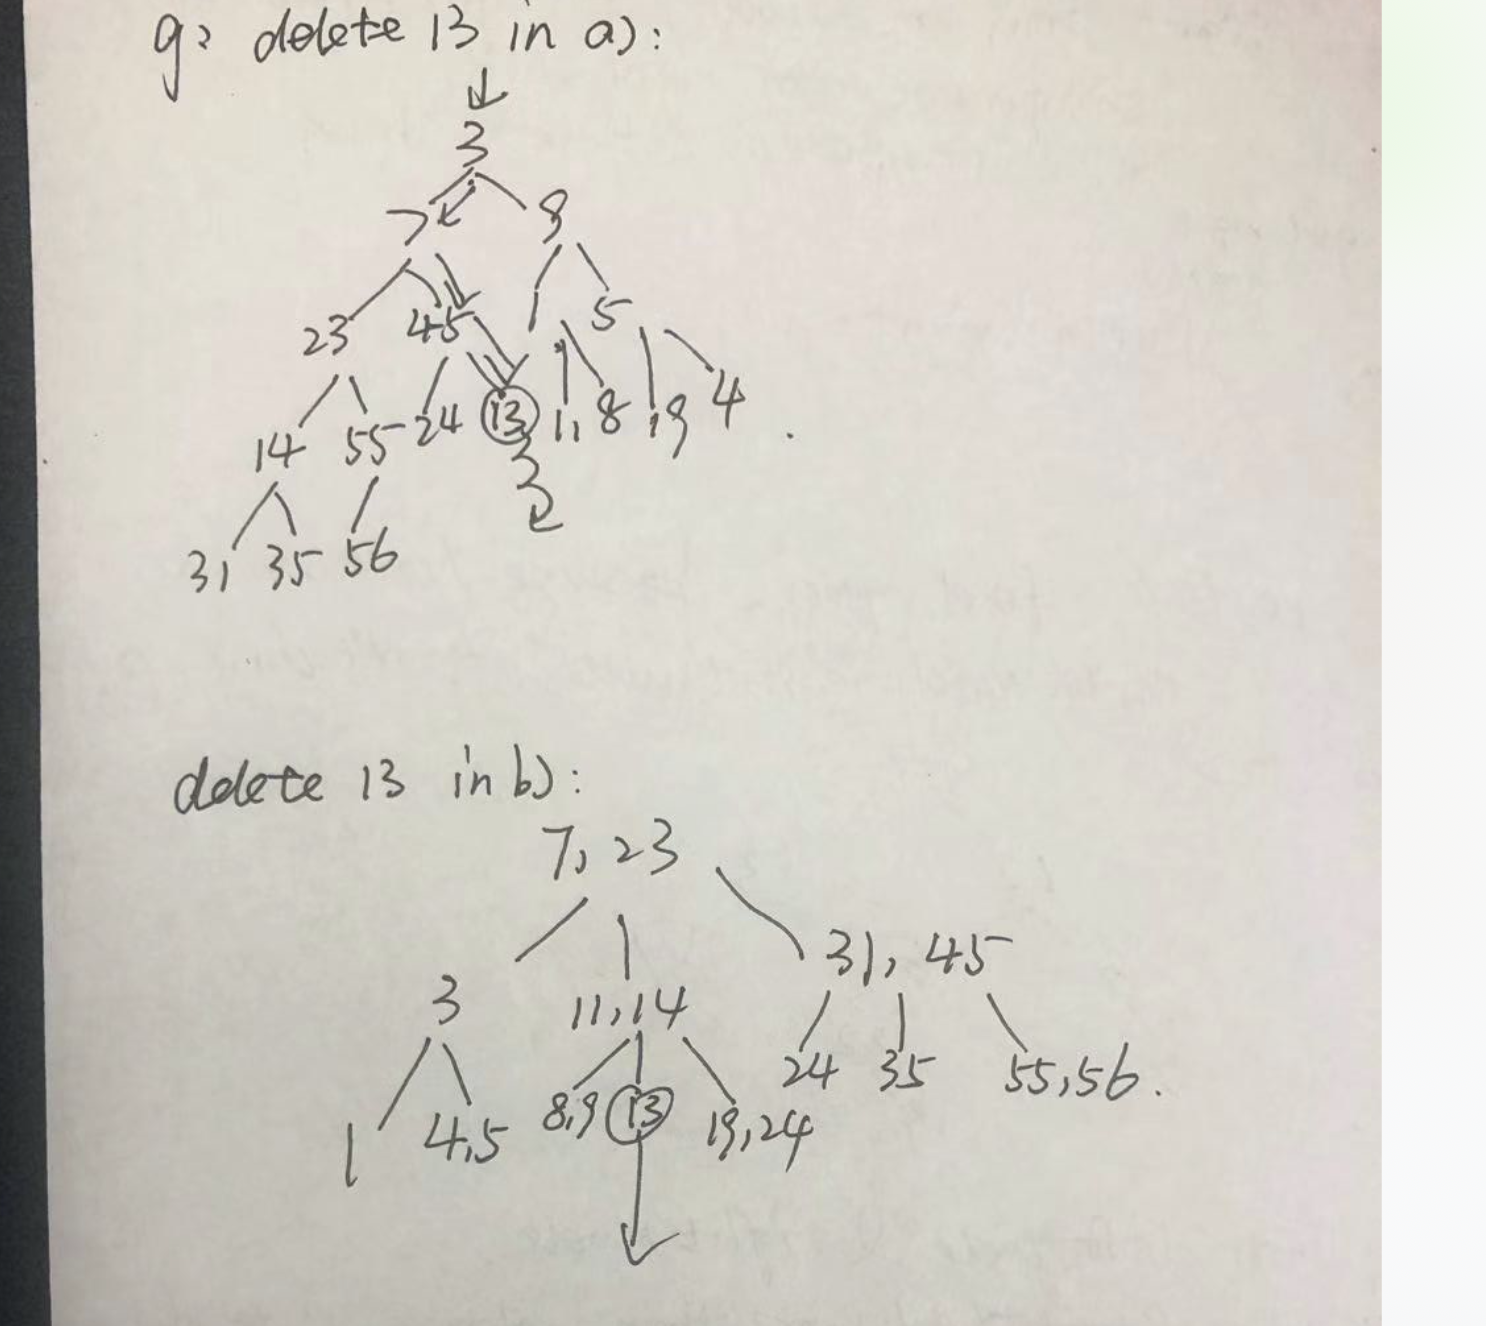 g: delete 13 in a):
3
7 9
23 45 1 5
14 55 24 13 11 8 19 4
31 35 56
delete 13 in b):
7, 23
3 11,14 31, 45
1 4,5 8,9 13 19,24 24 35 55,56.